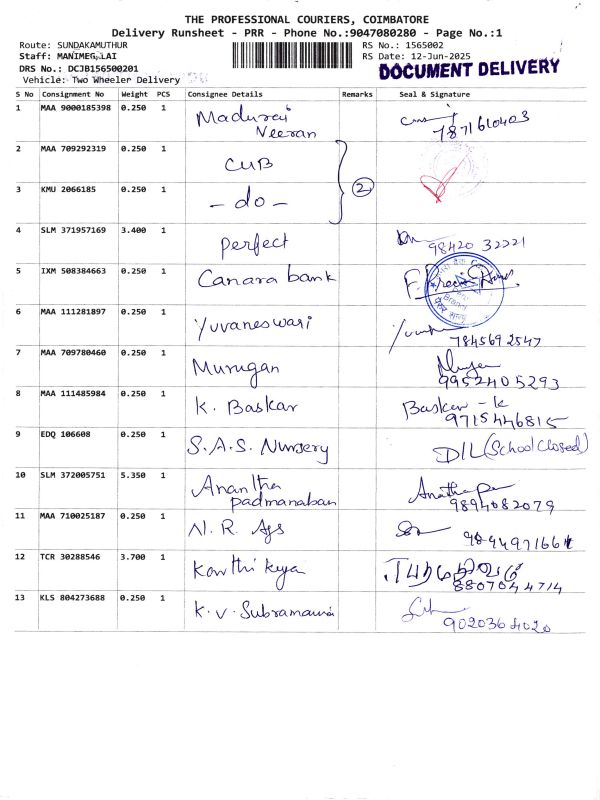 THE PROFESSIONAL COURIERS, COIMBATORE
Delivery Runsheet - PRR - Phone No.:9047080280 - Page No.:1
Route: SUNDAKAMUTHUR
RS No.: 1565002
Staff: MANIMEGALAI
RS Date: 12-Jun-2025
DRS No.: DCJB156500201
DOCUMENT DELIVERY
Vehicle: Two Wheeler Delivery
S No Consignment No Weight PCS Consignee Details Remarks Seal & Signature
1 MAA 9000185398 0.250 1 Madurai
Veeran 7871610403
2 MAA 709292319 0.250 1 CUB
2
3 KMU 2066185 0.250 1 - do -
4 SLM 371957169 3.400 1 Perfect 98420 32221
5 IXM 508384663 0.250 1 Canara bank
6 MAA 111281897 0.250 1 Yuvaneswari
7845692547
7 MAA 709780460 0.250 1 Murugan
9952405293
8 MAA 111485984 0.250 1 K. Baskar Baskar - K
9715446815
9 EDQ 106608 0.250 1 S.A.S. Nursery D/L (School closed)
10 SLM 372005751 5.350 1 Anantha
padmanaban 9894082079
11 MAA 710025187 0.250 1 N. R. Ags
12 TCR 30288546 3.700 1 Karthikeya
8807044714
13 KLS 804273688 0.250 1 K. V. Subramani
9020364020